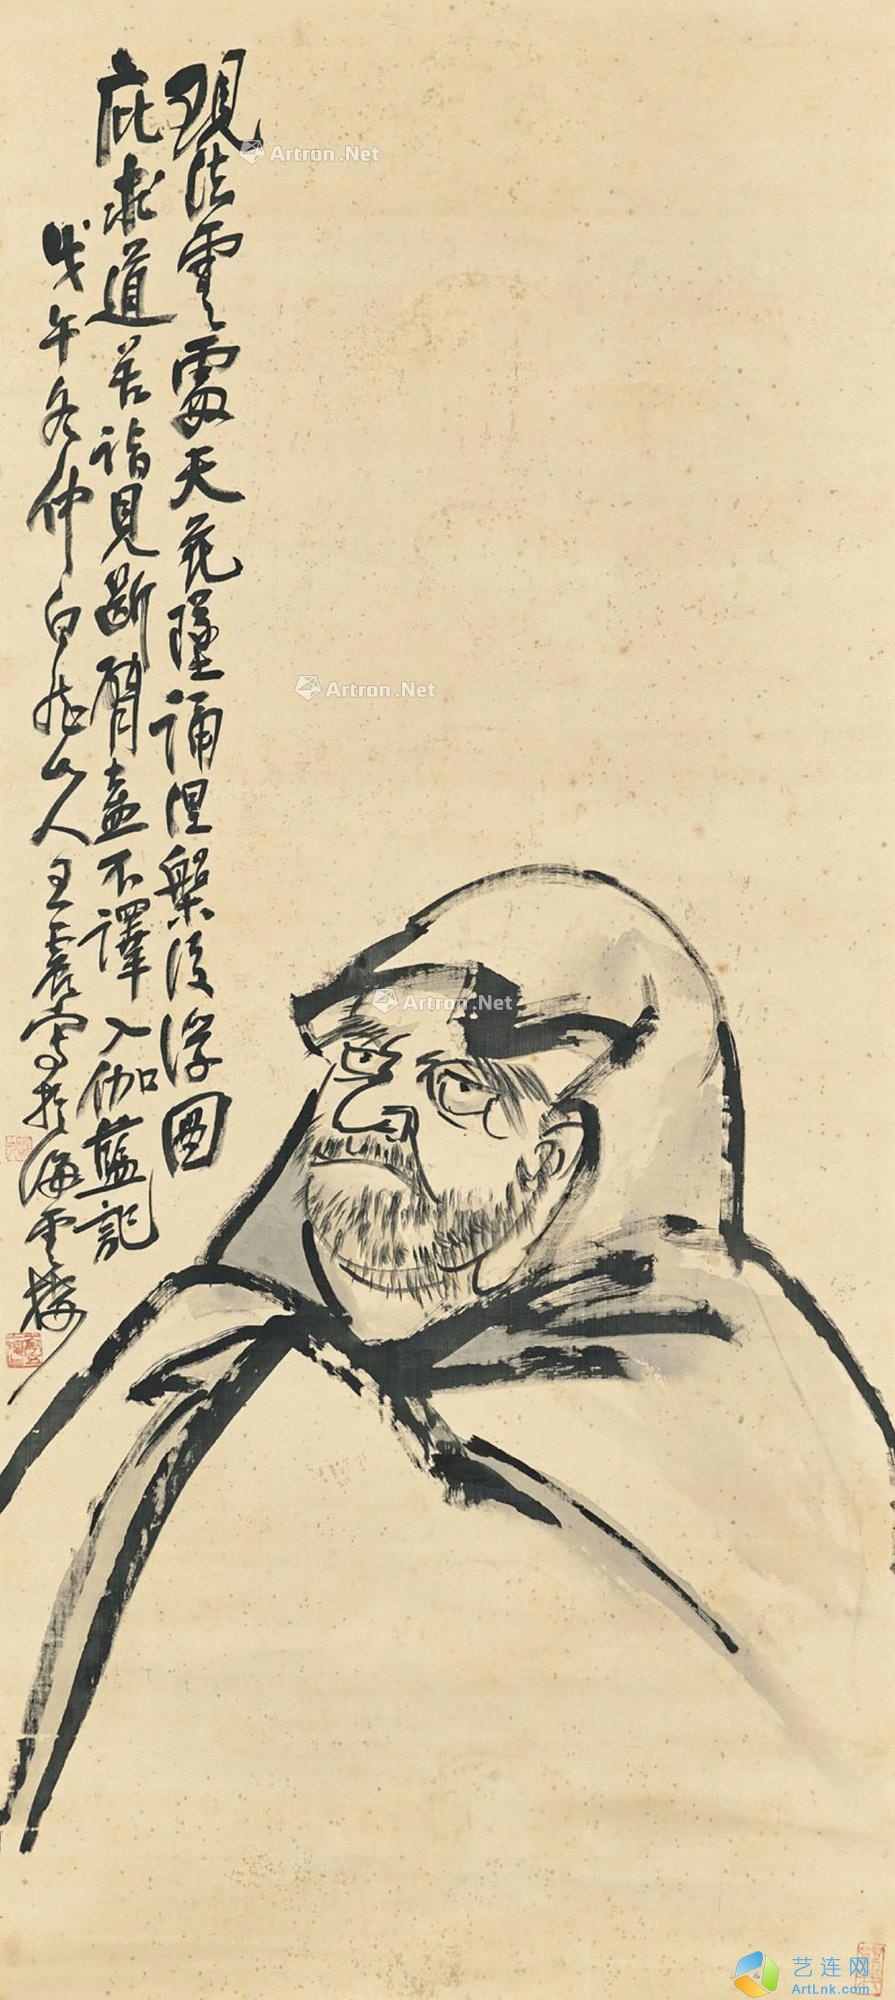 現法雲霎天花墜誦涅槃後浮圖
庇求道若詣見斷臂盍不譯入伽藍記
戊午冬仲白龍山人王震寫於海雲樓
Artron.Net
Artron.Net
Artron.Net
艺连网
ArtLnk.com